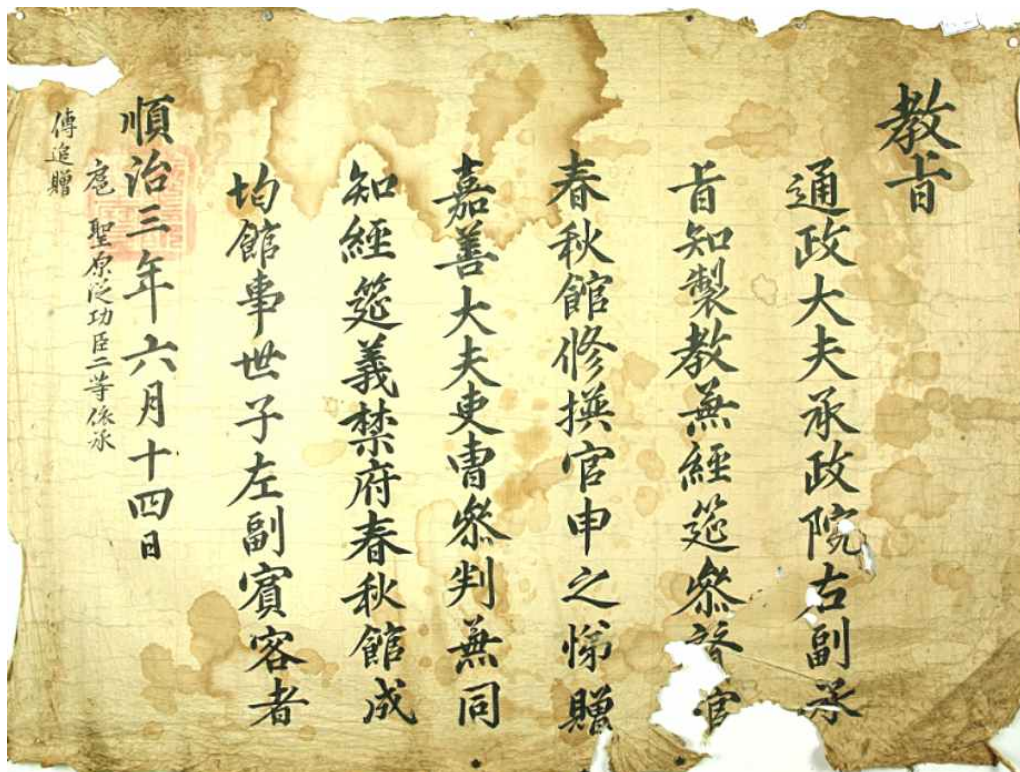 教旨
通政大夫承政院右副承
旨知製教兼經筵叅賛官
春秋館修撰官申之悌贈
嘉善大夫吏曹叅判兼同
知經筵義禁府春秋館成
均館事世子左副賓客者
順治三年六月十四日
扈 聖原從功臣二等依承
傳追贈